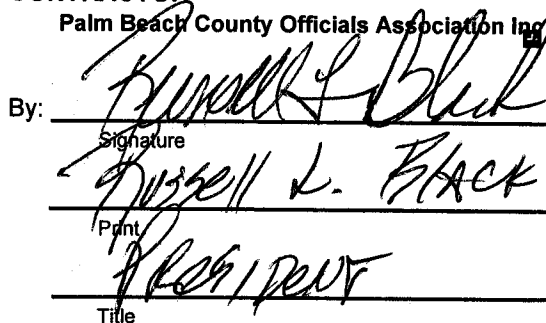 Palm Beach County Officials Association Inc
By: Russell L Black
Signature
Russell L. Black
Print
President
Title